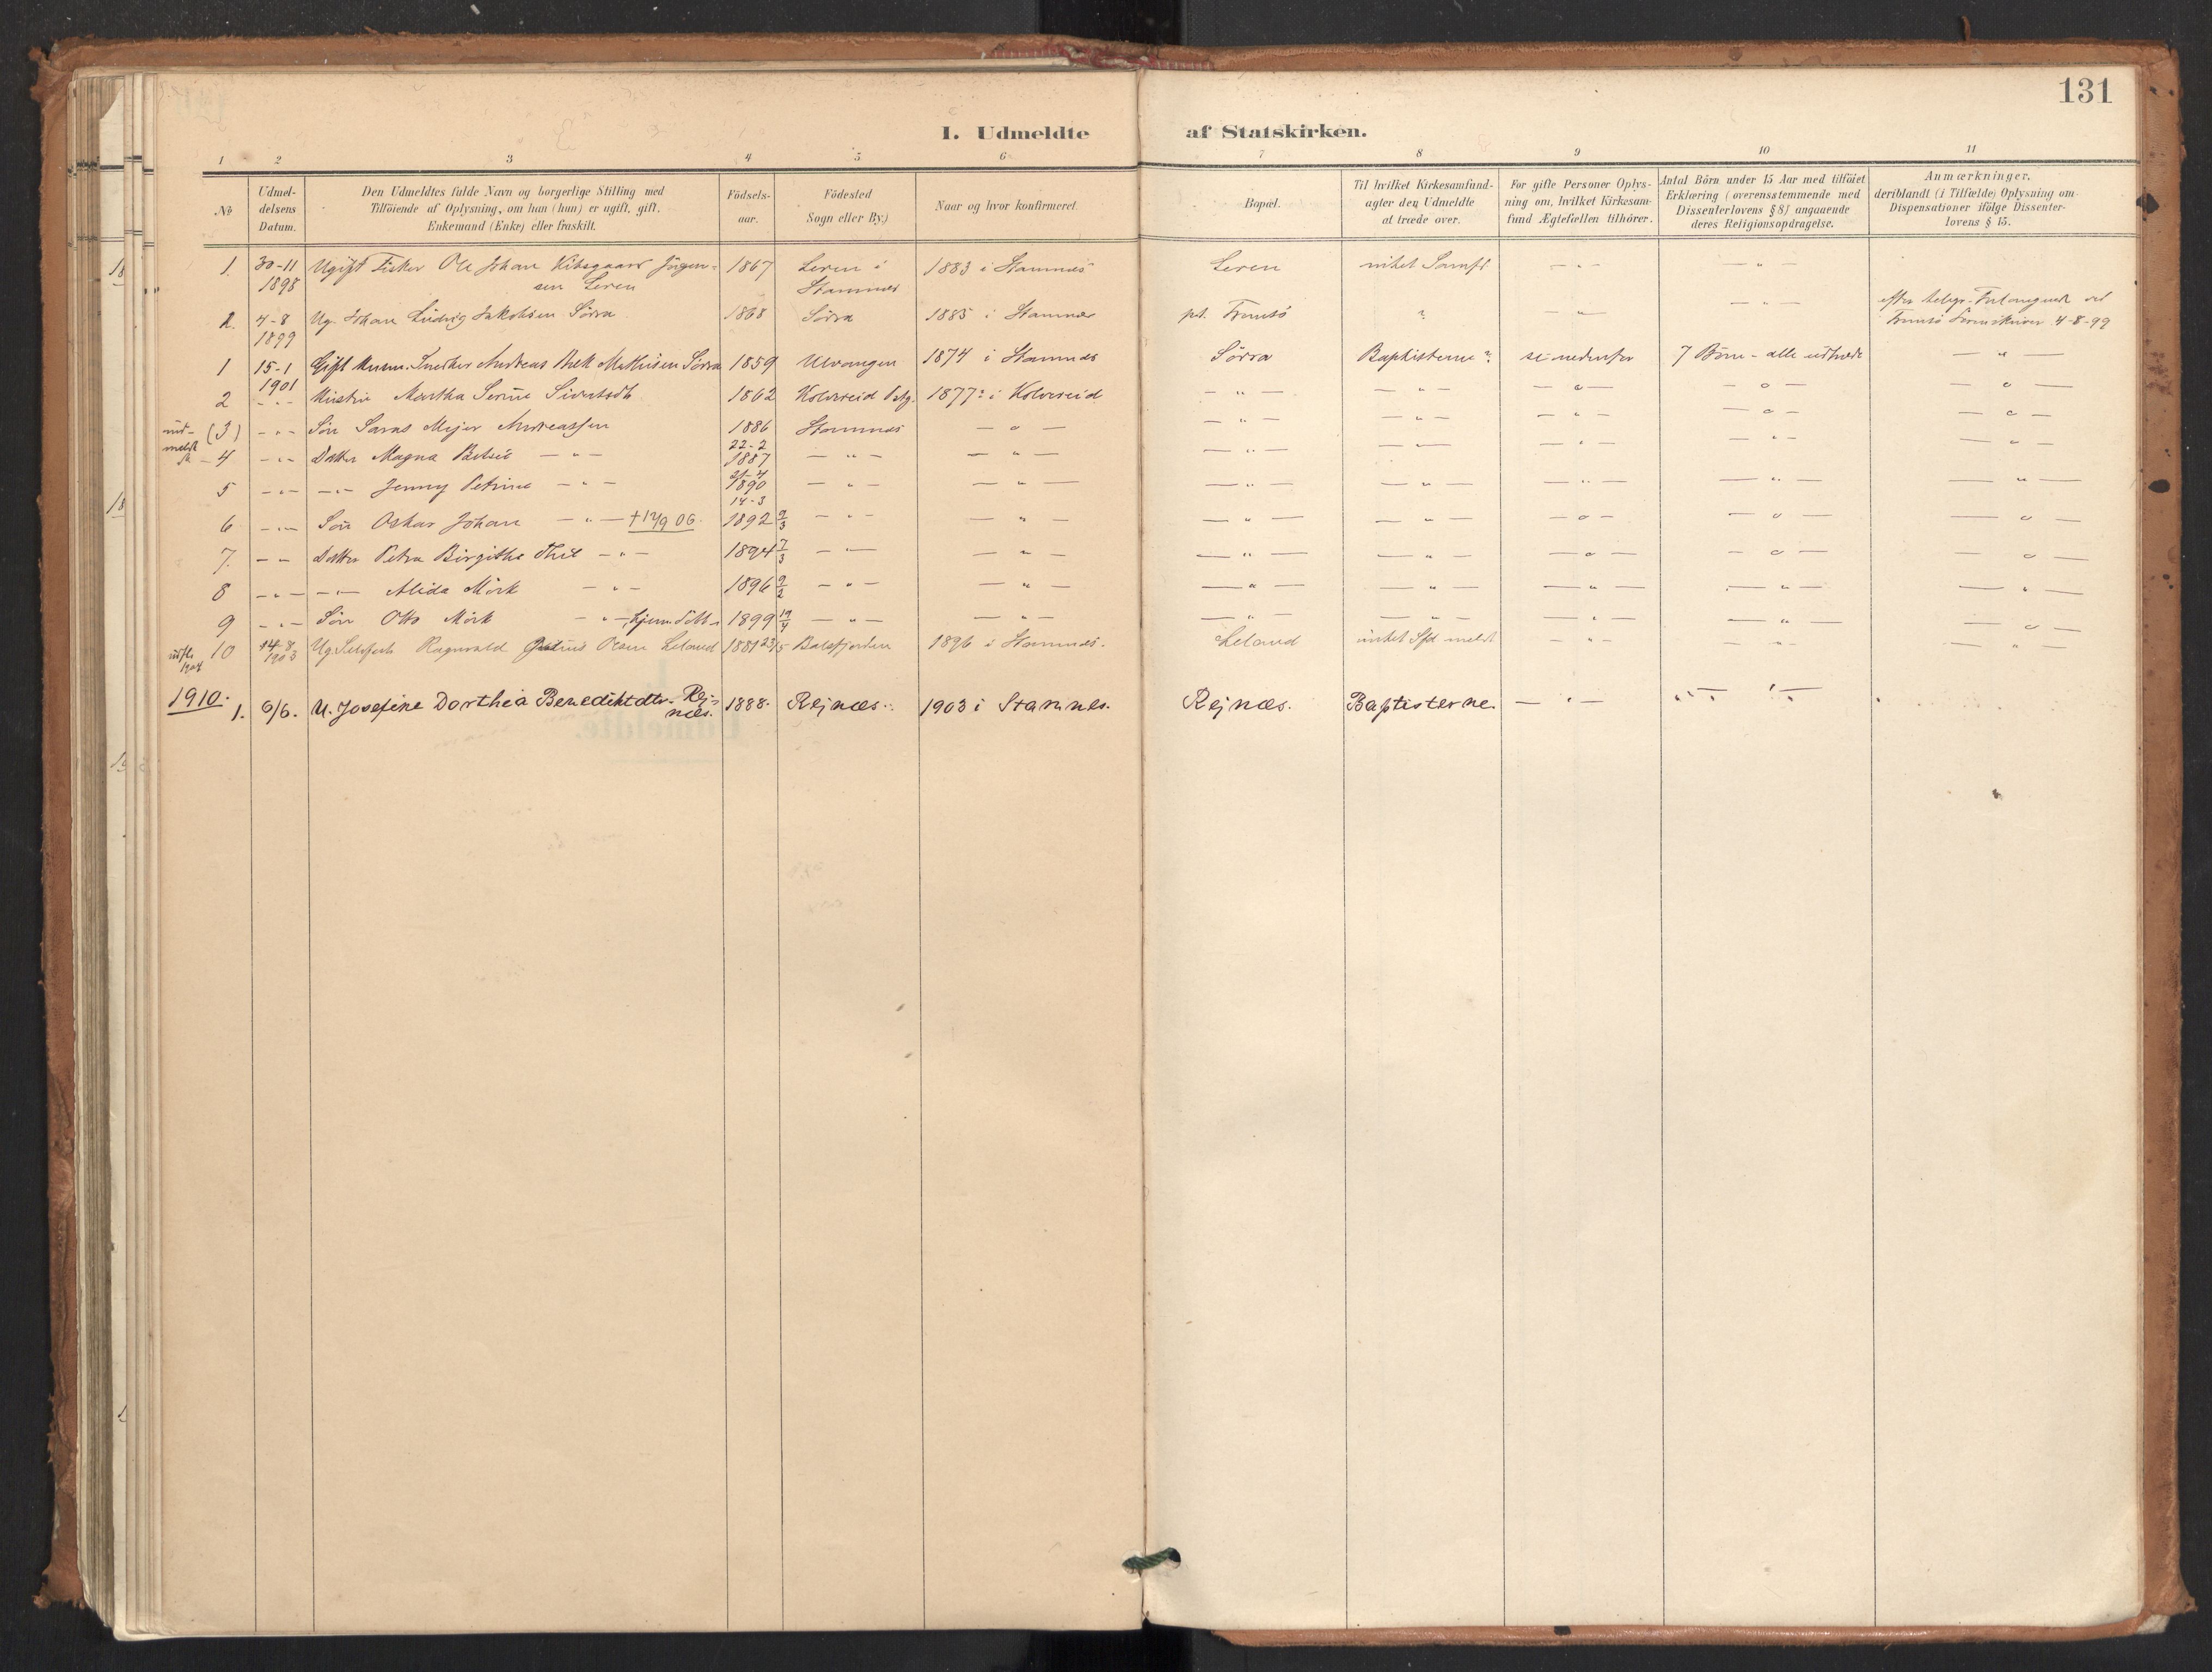 131
I. Udmeldte af Statskirken.
1 2 3 4 5 6 7 8 9 10 11
№
Udmel-
delsens
Datum.
Den Udmeldtes fulde Navn og borgerlige Stilling med
Tilföiende af Oplysning, om han (hun) er ugift, gift,
Enkemand (Enke) eller fraskilt.
Födsels-
aar.
Födested
Sogn eller By.)
Naar og hvor konfirmeret.
Bopæl.
Til hvilket Kirkesamfund
agter den Udmeldte
at træde over.
For gifte Personer Oplys-
ning om, hvilket Kirkesam-
fund Ægtefællen tilhörer.
Antal Börn under 15 Aar med tilföiet
Erklæring (overensstemmende med
Dissenterlovens § 8) angaaende
deres Religionsopdragelse.
Anmærkninger,
deriblandt (i Tilfælde) Oplysning om
Dispensationer ifölge Dissenter-
lovens § 15.
1. 30-11 Ugift Fisker Ole Johan Kibsgaard Jörgen- 1867 Leren i 1883 i Stamnes Leren intet Samfd — " — — " —
1898 sen Leren Stamnes
2. 4-8 Ug. Johan Ludvig Jakobsen Sörra 1868 Sörra 1885 i Stamnes pt. Tromsö ? — " — — " — efter telegr.
1899 Tromsö 4-8-99
1 15-1 Gift Snedker Andreas Bek Mathisen Sörra 1859 Ulvangen 1874 i Stamnes Sörra Baptisterne? se nedenfor 7 Börn - alle udtraadt — " —
1901
2 - " - Hustru Martha Serine Sivertsdtr 1862 Kolvereid Pstg. 1877? i Kolvereid — " — — " — — " — — " — — " —
(3) - " - Sön Meyer Andreassen 1886 Stamnes — " — — " — — " — — " — — " — — " —
22-2
4 - " - Datter Magna Betsie — " — 1887 — " — — " — — " — — " — — " — — " — — " —
21-4
5 - " - — " — Jenny Petrine — " — 1890 — " — — " — — " — — " — — " — — " — — " —
14-3
6 - " - Sön Oskar Johan — " — + 14/9 06. 1892 9/3 — " — — " — — " — — " — — " — — " — — " —
7. - " - Datter Petra Birgithe — " — 1894 7/3 — " — — " — — " — — " — — " — — " — — " —
8 - " - — " — Alida Mörk — " — 1896 9/2 — " — — " — — " — — " — — " — — " — — " —
9 - " - Sön Otto Mörk — " — hjemdöbt 1899 19/4 — " — — " — — " — — " — — " — — " — — " —
10 14-8 Ug. Ragnvald Olsen Leland 1881 23/5 Balsfjorden 1896 i Stamnes. Leland intet Sfd meldt — " — — " — — " —
1903
1904
1910.
1. 6/6. U. Josefine Dorthea Benediktdtr. Rej- 1888. Rejnæs. 1903 i Stamnes. Rejnæs. Baptisterne. — " —
næs.